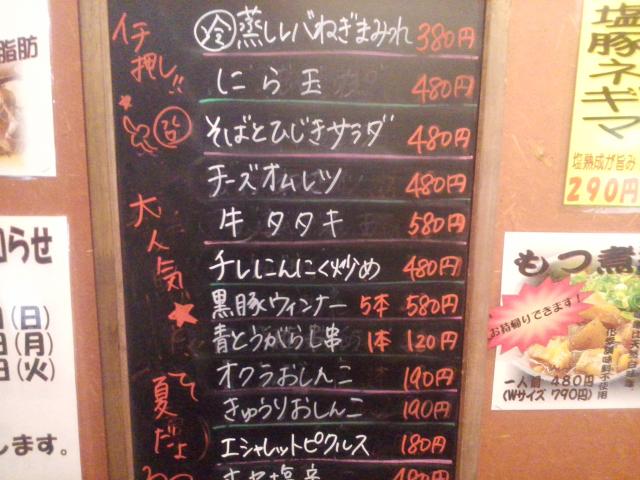 イチ押し!!
大人気
夏だょ
冷 蒸しレバねぎまみれ 380円
にら玉 480円
そばとひじきサラダ 480円
チーズオムレツ 480円
牛タタキ 580円
チレにんにく炒め 480円
黒豚ウィンナー 5本 580円
青とうがらし串 1本 120円
オクラおしんこ 190円
きゅうりおしんこ 190円
エシャレットピクルス 180円
脂肪
らせ
(日)
(月)
(火)
します。
塩豚ネギマ
塩熟成が旨み
290円
もつ煮
お持帰りできます!
一人前 480円
(Wサイズ 790円)